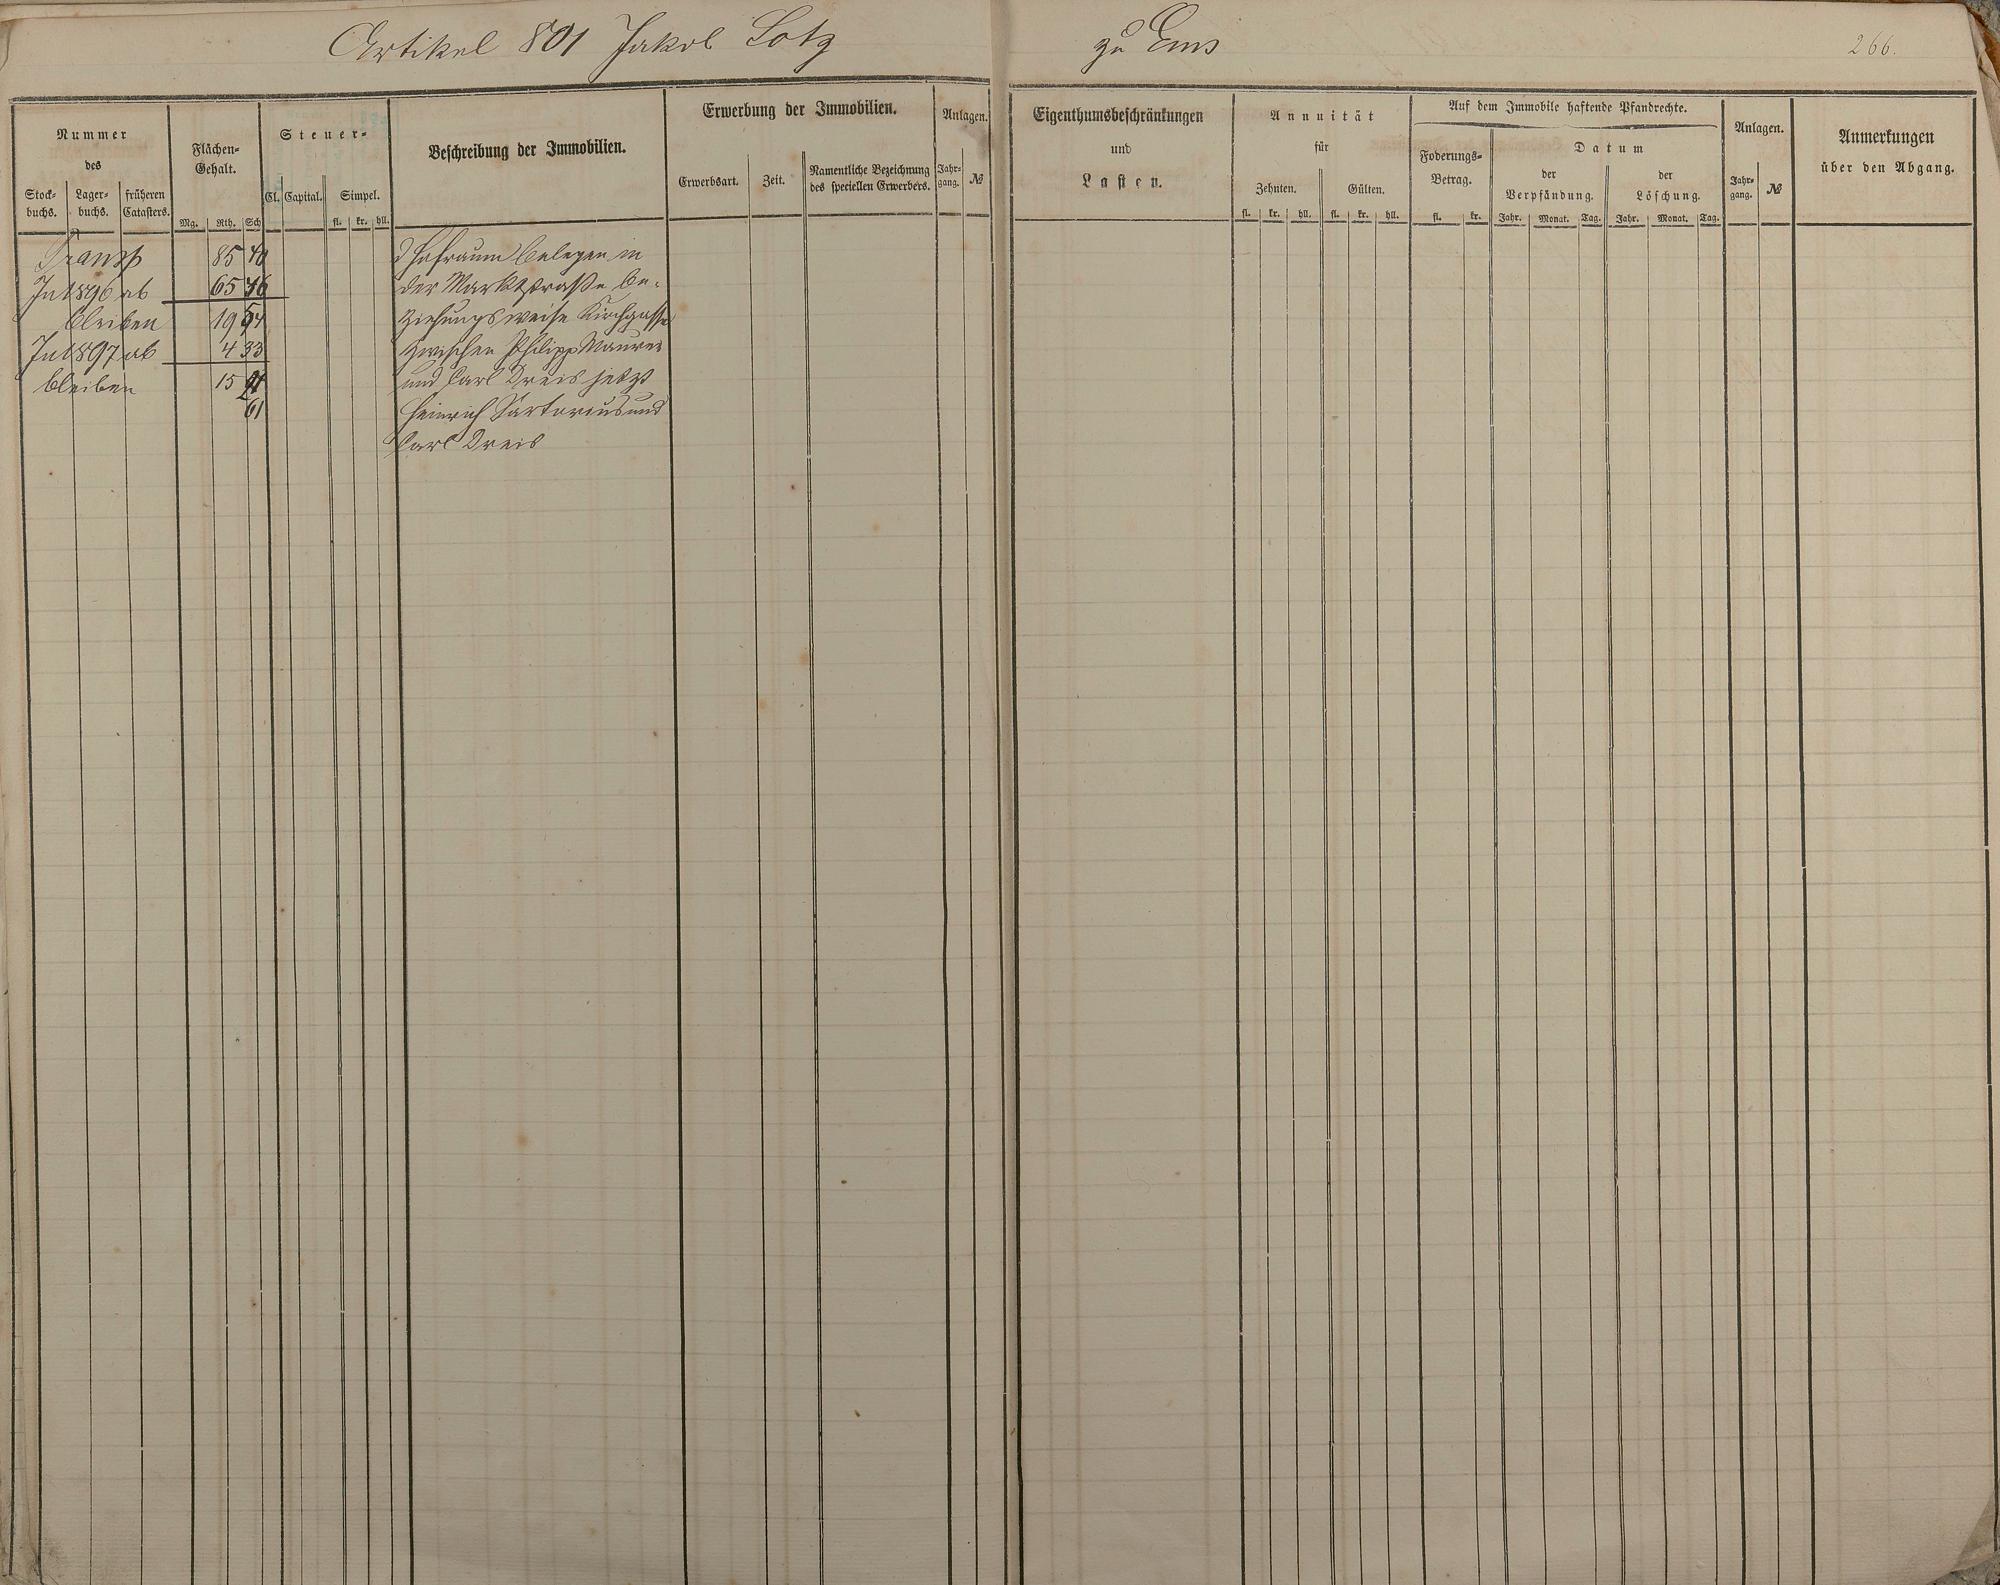 Artikel 801 Jakob Lotz zu Ems
266.
Nummer
des
Stock-
buchs.
Lager-
buchs.
früheren
Catasters.
Flächen-
Gehalt.
Mg. Rth. Sch
Steuer-
Cl. Capital. Simpel.
fl. kr. hll.
Beschreibung der Immobilien.
Erwerbung der Immobilien.
Erwerbsart. Zeit.
Namentliche Bezeichnung
des speciellen Erwerbers.
Anlagen.
Jahr-
gang. №
Eigenthumsbeschränkungen
und
Lasten.
Annuität
für
Zehnten. Gülten.
fl. kr. hll. fl. kr. hll.
Auf dem Immobile haftende Pfandrechte.
Foderungs-
Betrag.
fl. kr.
Datum
der
Verpfändung.
der
Löschung.
Jahr. Monat. Tag. Jahr. Monat. Tag.
Anlagen.
Jahr-
gang. №
Anmerkungen
über den Abgang.
Transp 85 40
In 1896 ab 65 46
bleiben 19 94
In 1897 ab 4 33
bleiben 15
61
Hofraum belegen in
der Marktstraße be-
ziehungsweise Kirchgasse
zwischen Philipp Maurer
und Carl Dreis jetzt
Heinrich Sartorius und
Carl Dreis